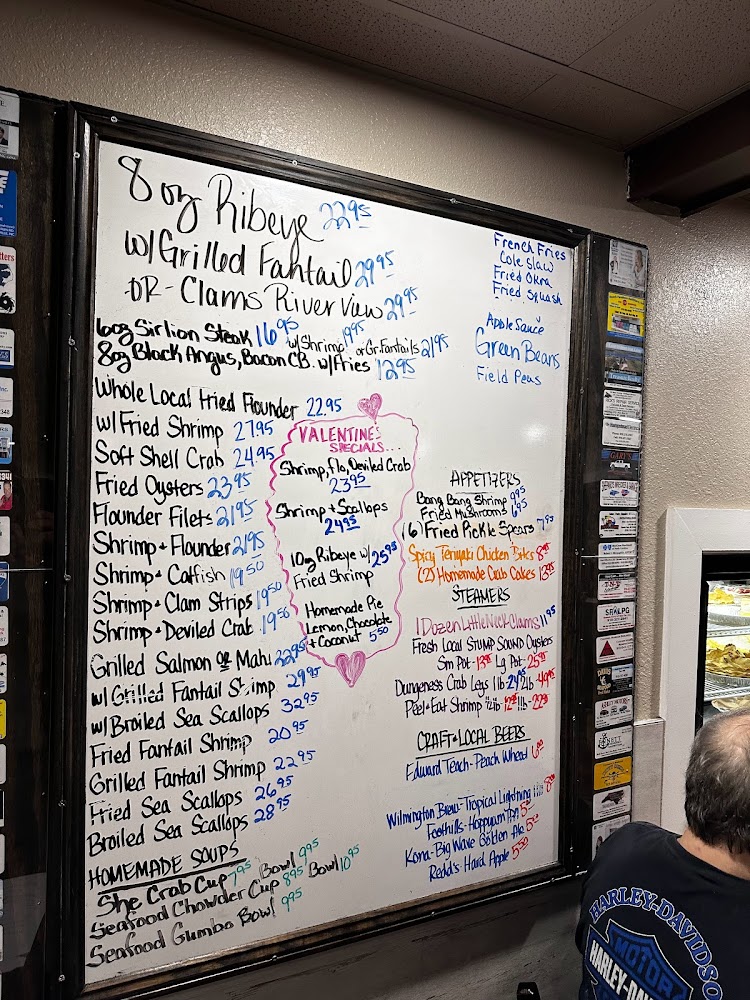 8 oz Ribeye 22.95
w/Grilled Fantail 29.95
OR - Clams River View 29.95
6oz Sirlion Steak 16.95 w/Shrimp 19.95 or Gr. Fantails 21.95
8oz Black Angus, Bacon CB. w/Fries 12.95
Whole Local Fried Flounder 22.95
w/ Fried Shrimp 27.95
Soft Shell Crab 24.95
Fried Oysters 23.95
Flounder Filets 21.95
Shrimp + Flounder 21.95
Shrimp + Catfish 19.50
Shrimp + Clam Strips 19.50
Shrimp + Deviled Crab 19.50
Grilled Salmon or Mahi 22.95
w/ Grilled Fantail Shrimp 29.95
w/ Broiled Sea Scallops 32.95
Fried Fantail Shrimp 20.95
Grilled Fantail Shrimp 22.95
Fried Sea Scallops 26.95
Broiled Sea Scallops 28.95
HOMEMADE SOUPS
She Crab Cup 7.95 Bowl 9.95
Seafood Chowder Cup 8.95 Bowl 10.95
Seafood Gumbo Bowl 9.95
VALENTINES
SPECIALS...
Shrimp, Flo, Deviled Crab
23.95
Shrimp + Scallops
24.95
10oz Ribeye w/ 25.95
Fried Shrimp
Homemade Pie
Lemon, Chocolate
+ Coconut 5.50
French Fries
Cole Slaw
Fried Okra
Fried Squash
Apple Sauce
Green Beans
Field Peas
APPETIZERS
Bang Bang Shrimp 9.95
Fried Mushrooms 6.95
(6) Fried Pickle Spears 7.95
Spicy Teriyaki Chicken Bites 8.95
(2) Homemade Crab Cakes 13.95
STEAMERS
1 Dozen Little Neck Clams 11.95
Fresh Local STUMP SOUND Oysters
Sm Pot - 13.95 Lg Pot - 25.95
Dungeness Crab Legs 1 lb - 24.95 2 lb - 44.95
Peel + Eat Shrimp 1/2 lb - 12.95 1 lb - 22.95
CRAFT + LOCAL BEERS
Edward Teach - Peach Wheat
Wilmington Brew - Tropical Lightning
Foothills - Hoppyum IPA
Kona - Big Wave Golden Ale
Redd's Hard Apple 5.50
HARLEY-DAVIDSON
MOTOR
HARLEY-DAVI